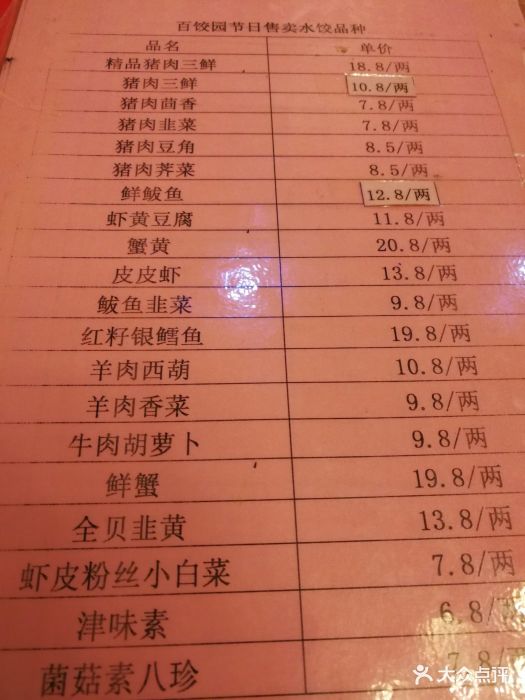 百饺园节日售卖水饺品种
品名 单价
精品猪肉三鲜 18.8/两
猪肉三鲜 10.8/两
猪肉茴香 7.8/两
猪肉韭菜 7.8/两
猪肉豆角 8.5/两
猪肉荠菜 8.5/两
鲜鲅鱼 12.8/两
虾黄豆腐 11.8/两
蟹黄 20.8/两
皮皮虾 13.8/两
鲅鱼韭菜 9.8/两
红籽银鳕鱼 19.8/两
羊肉西葫 10.8/两
羊肉香菜 9.8/两
牛肉胡萝卜 9.8/两
鲜蟹 19.8/两
全贝韭黄 13.8/两
虾皮粉丝小白菜 7.8/两
津味素 6.8/两
菌菇素八珍 7.8/两
大众点评